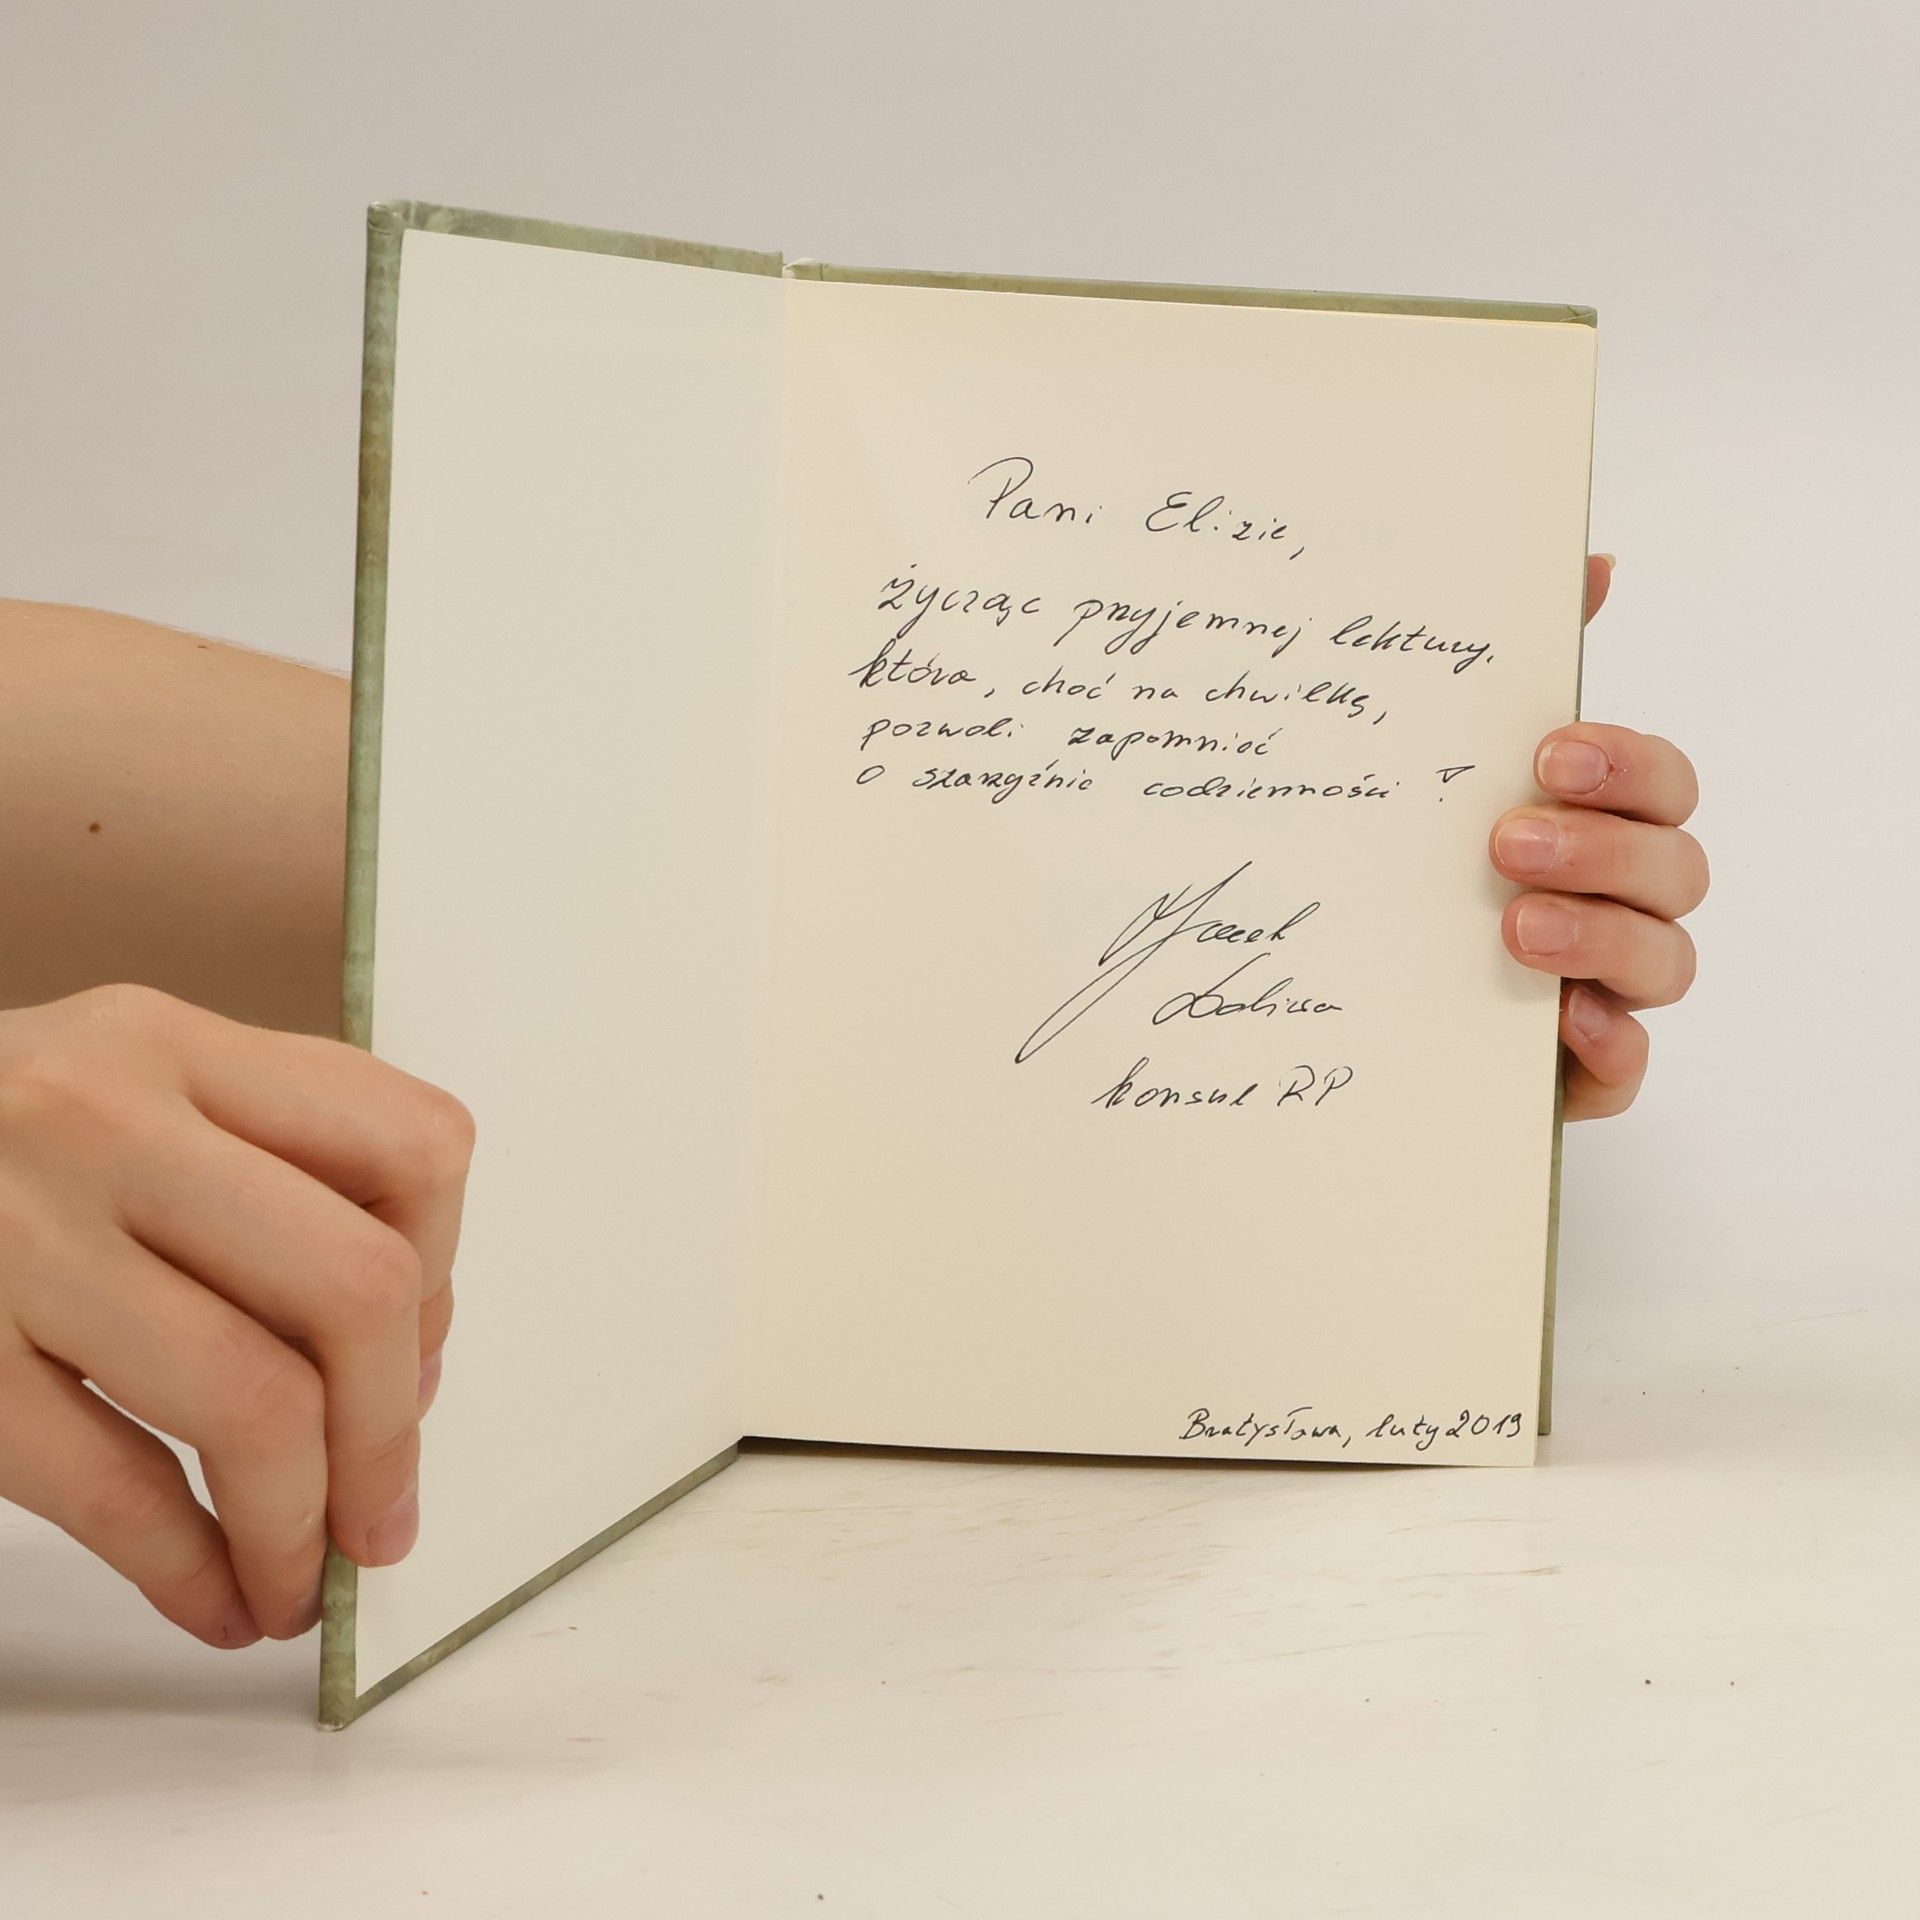 Pani Elizie,
życząc przyjemnej lektury,
która, choć na chwilkę,
pozwoli zapomnieć
o szarzyźnie codzienności!
Jacek
Doliwa
konsul RP
Bratysława, luty 2019